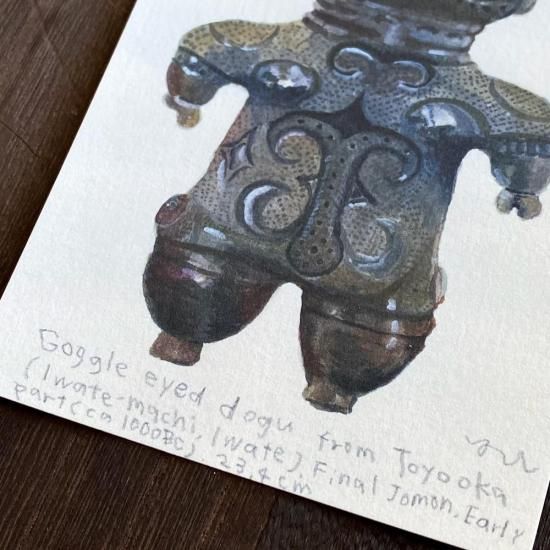 Goggle eyed dogu from Toyooka
(Iwate-machi, Iwate) Final Jomon, Early
part (ca 1000BC), 23,4 cm